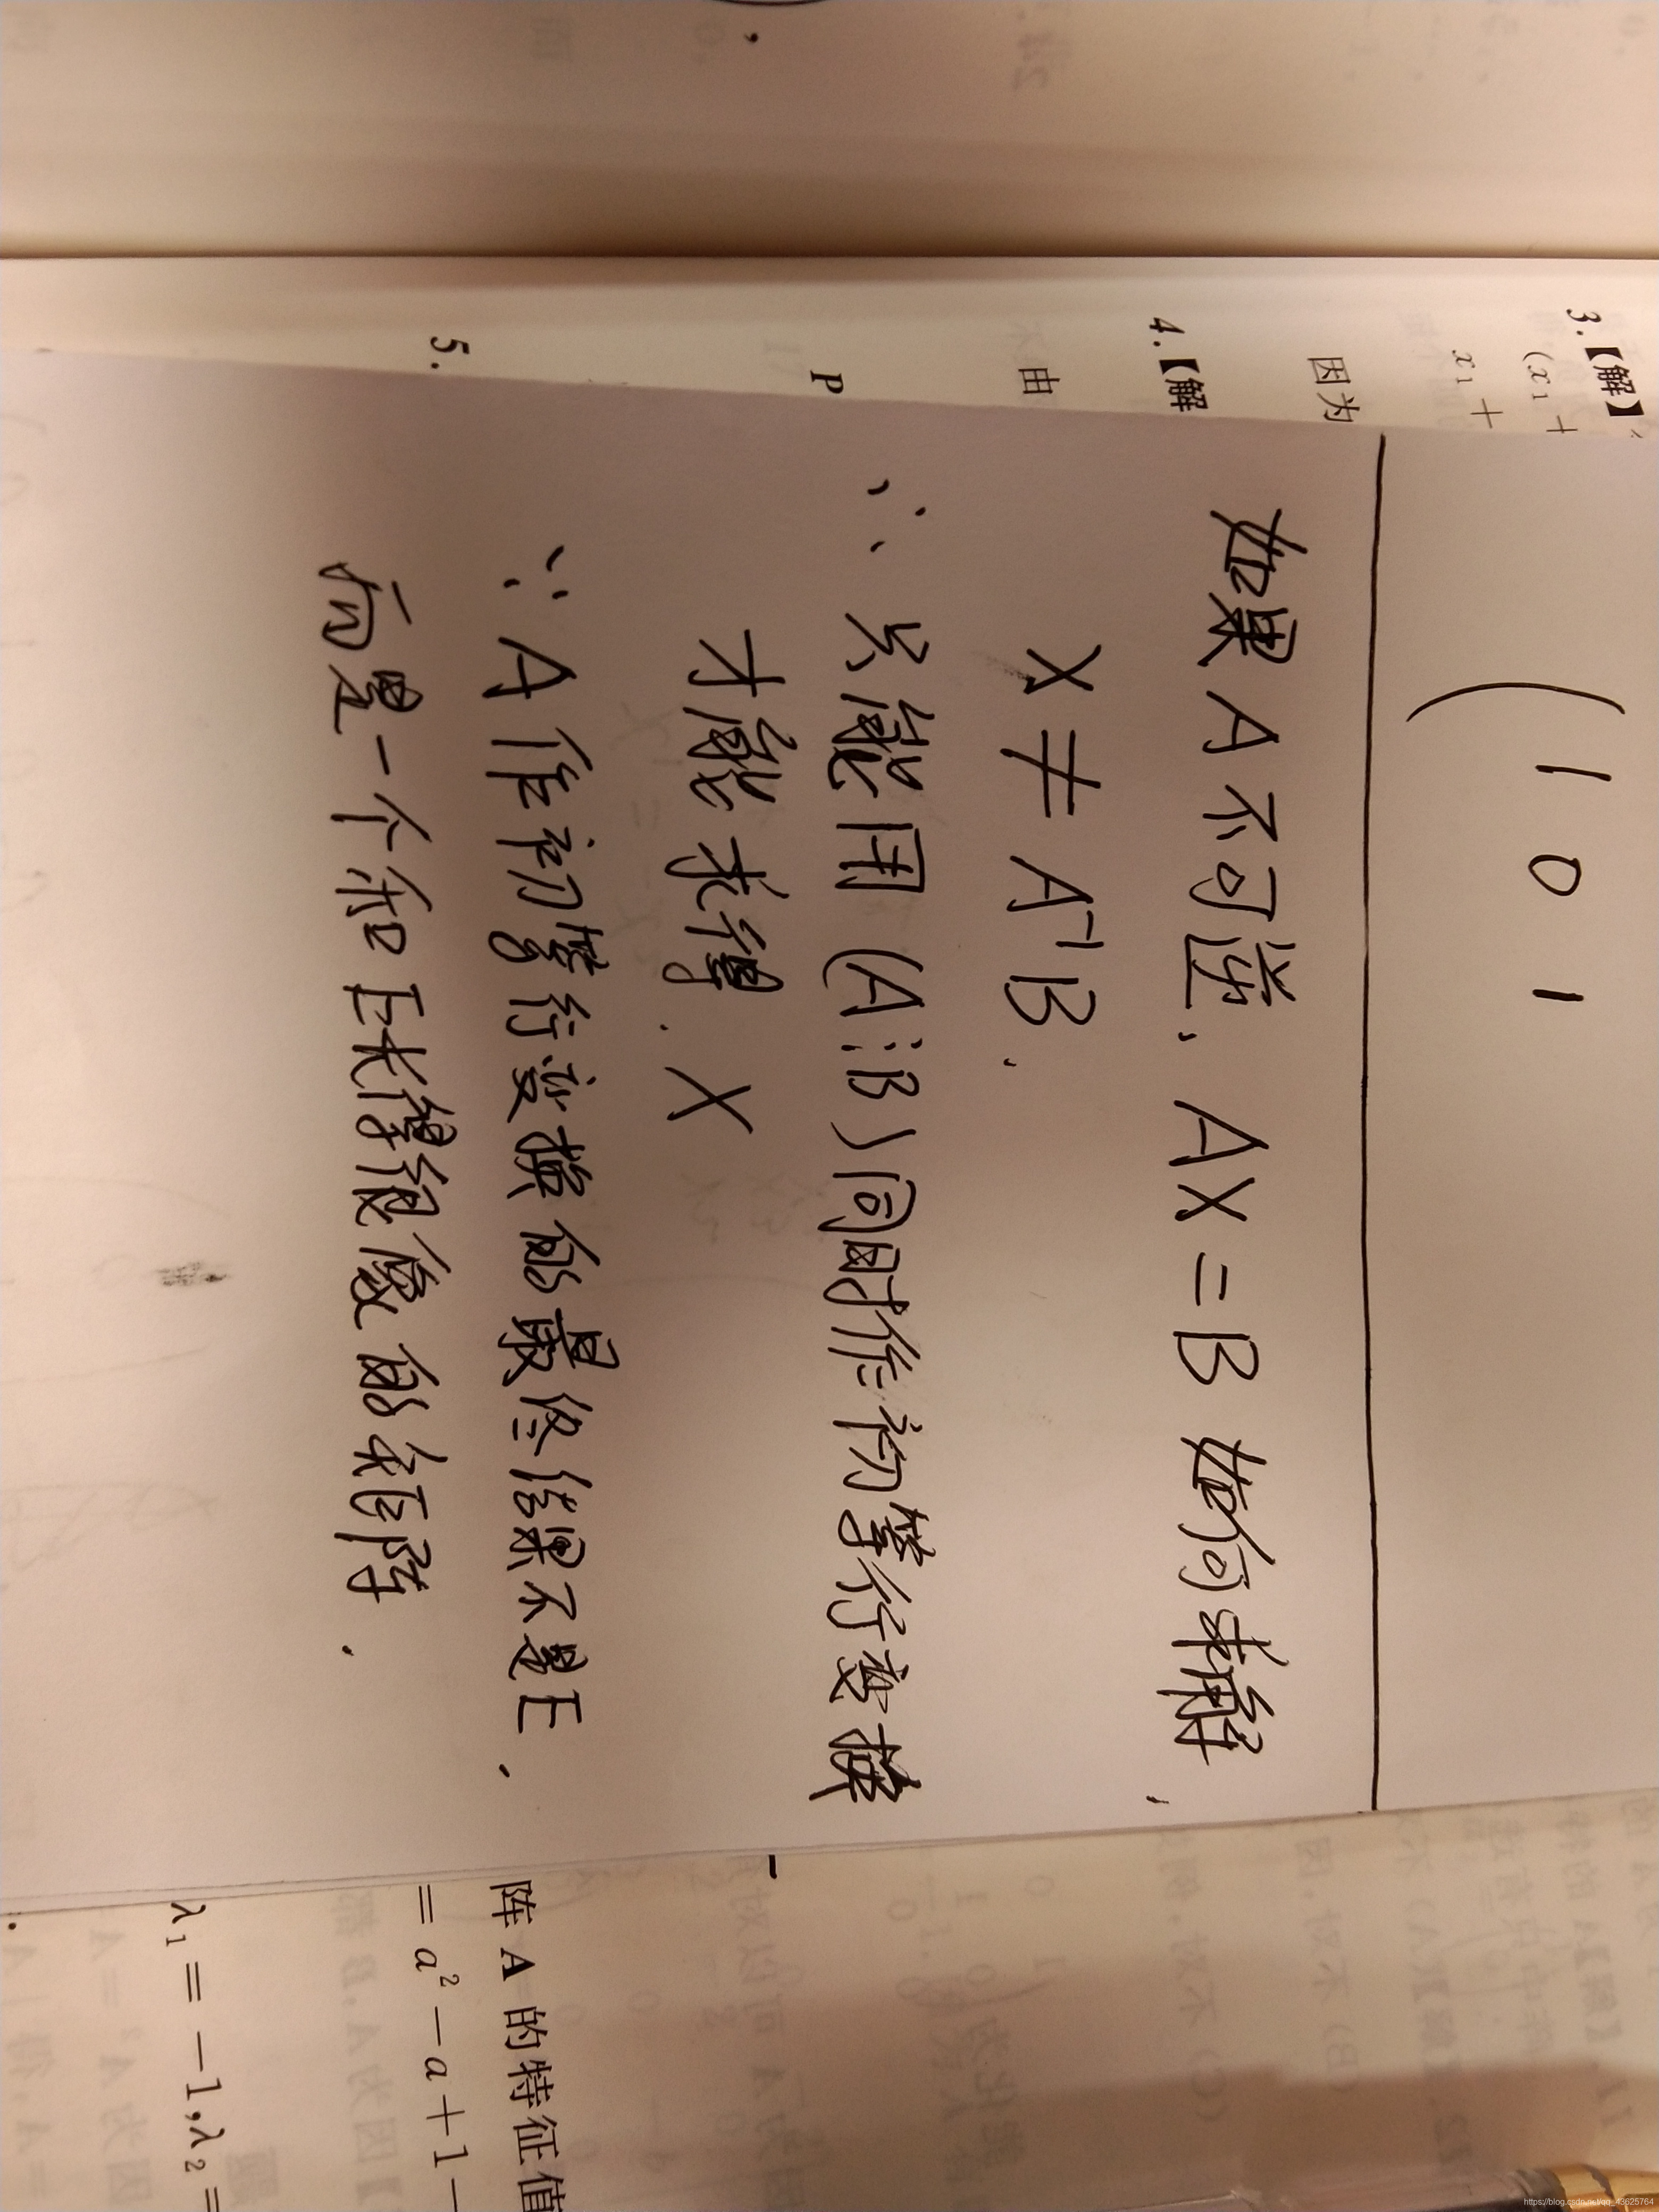 3.【解】
(x₁ +
x₁ +
因为
4.【解
由
P
5.
( 1 0 1
如果 A 不可逆, AX = B 如何求解,
X ≠ A⁻¹B.
∴ 只能用 (A⋮B) 同时作初等行变换
才能求得. X
∵ A 作初等行变换的最终结果不是E,
而是一个和E长得很像的矩阵.
阵 A 的特征值
= a² − a + 1 −
λ₁ = −1,λ₂ =
https://blog.csdn.net/qq_43625764